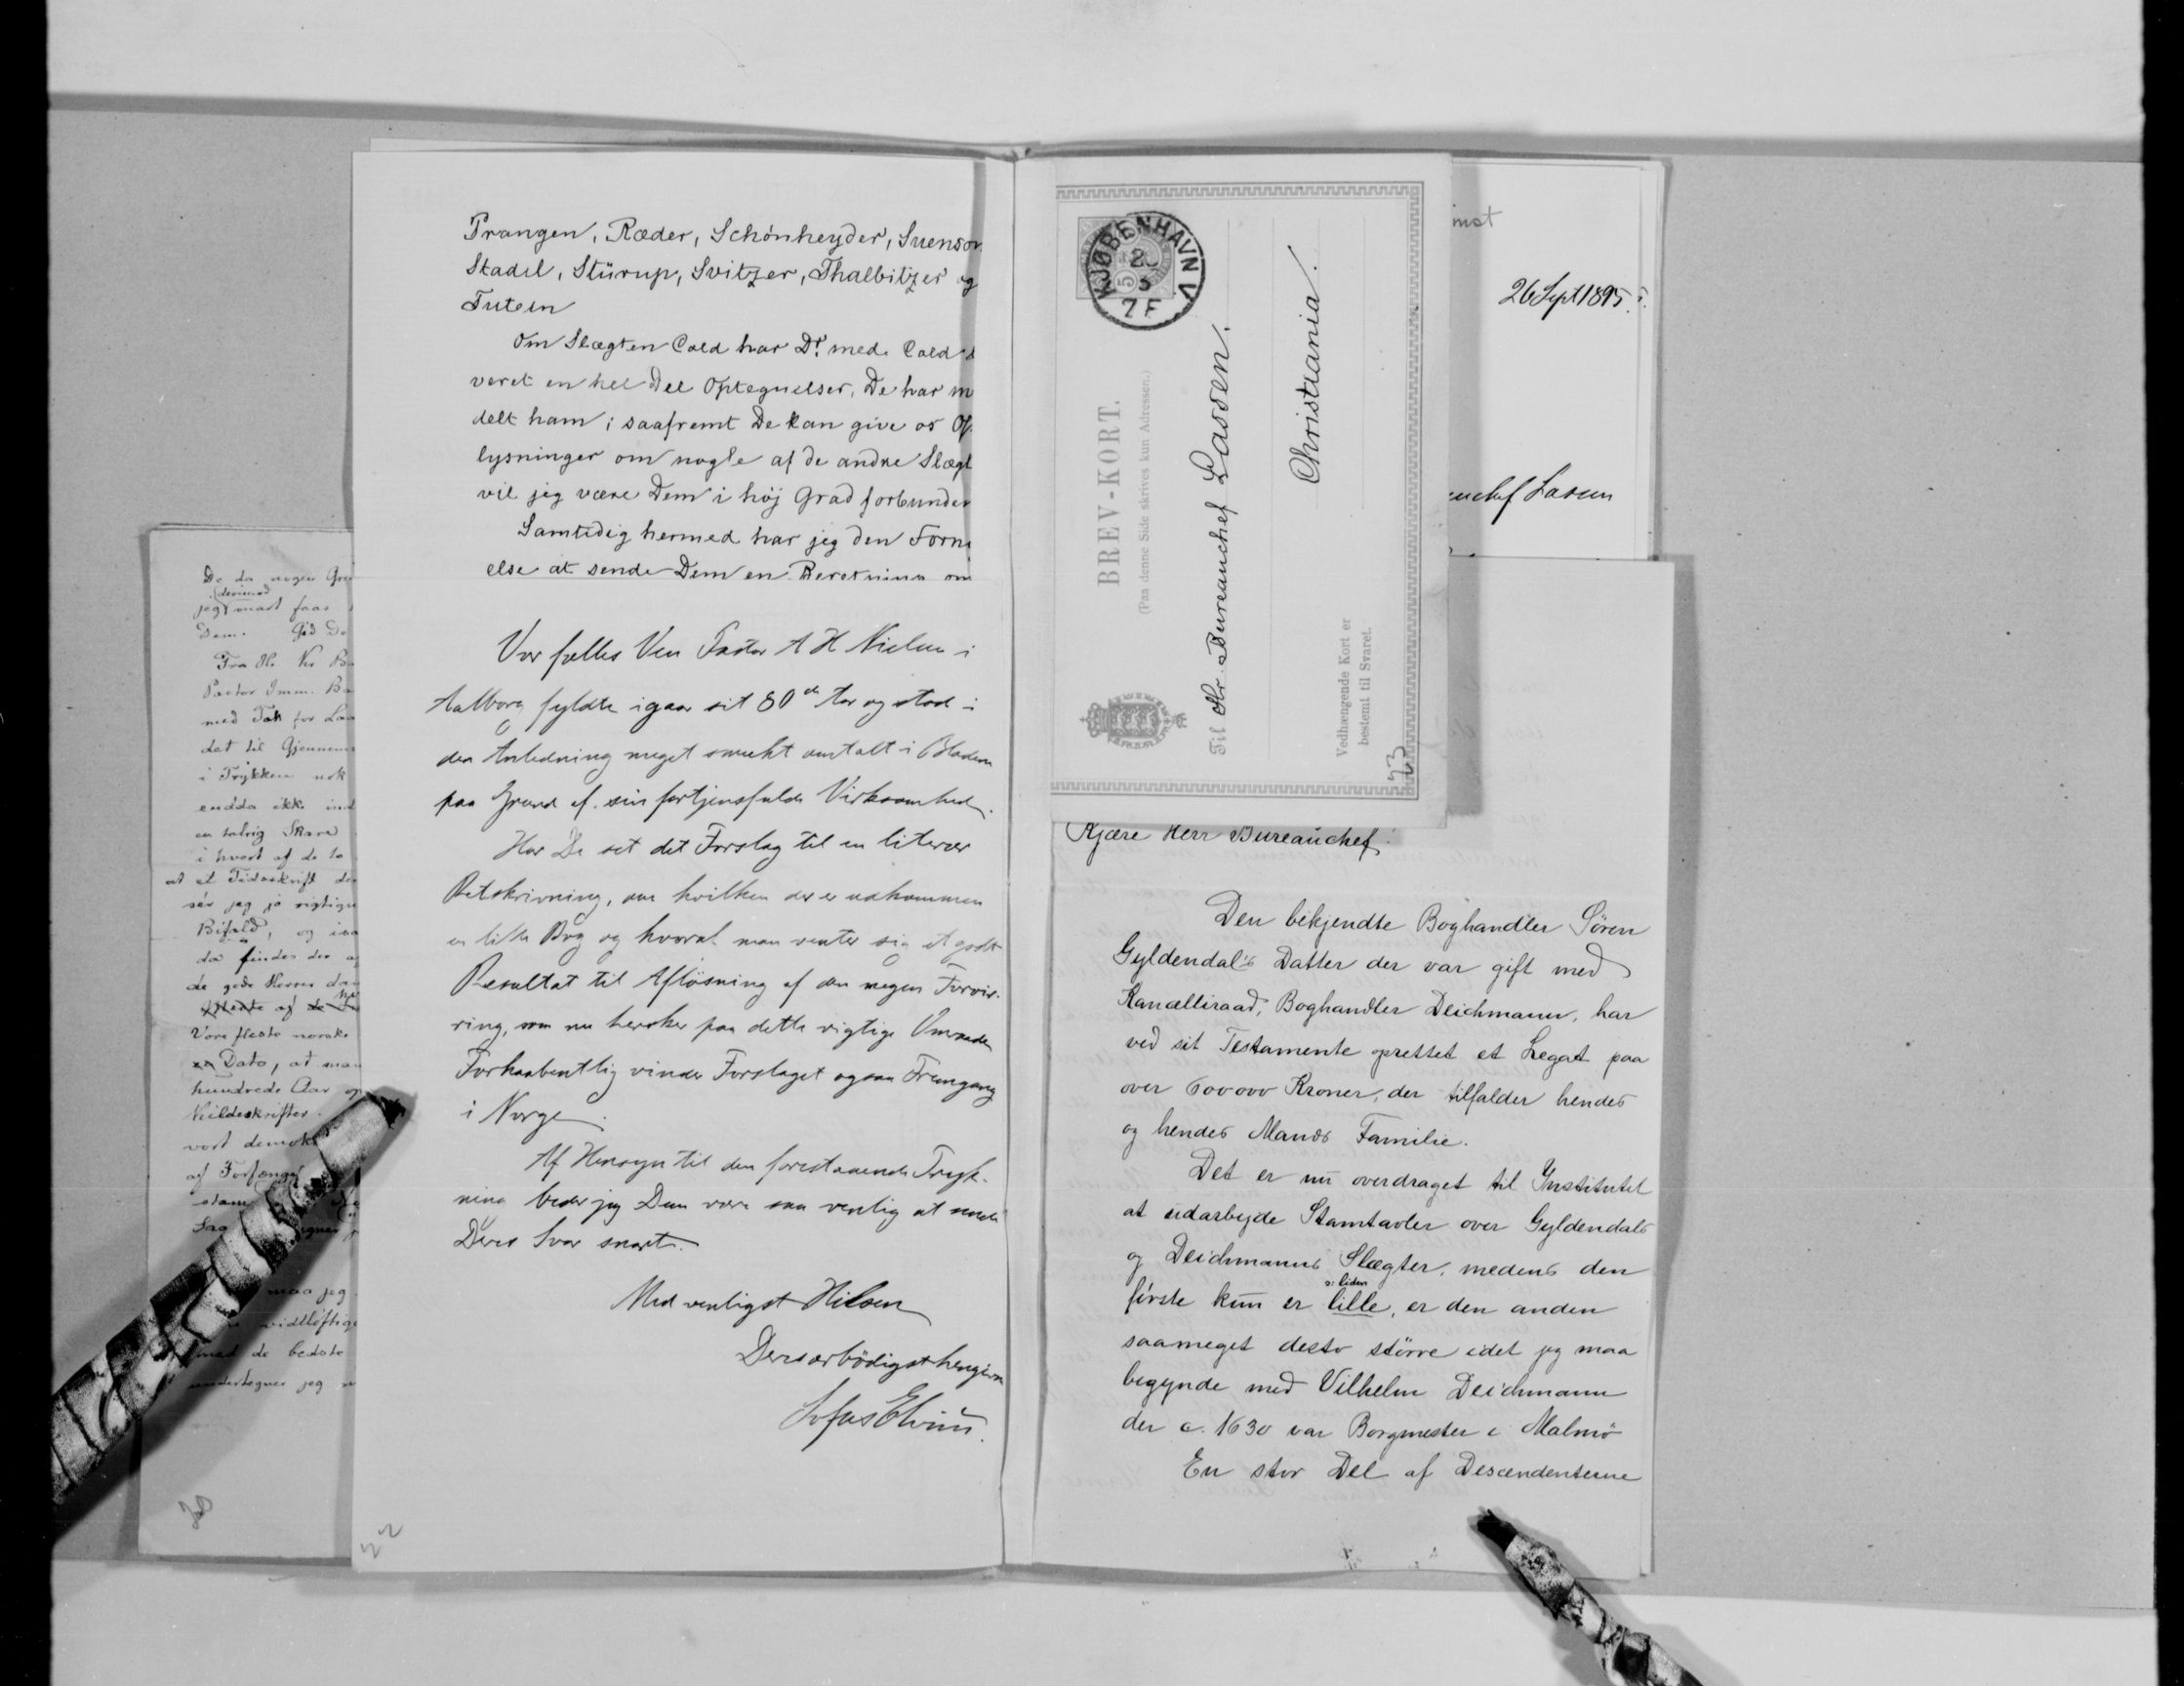 De da nogen
jeg snart faae
derimod
Dem. Gid De
Fra Hr.
Pastor Imm. Ba
med Tak for Laa
det til Gjennem
i Trykken nok
endda ikke ind
en talrig Skare
i hvert af de to
at et Tidsskrift der
ser jeg jo rigtign
Bifald, og
da findes der
de gode Herrer
af
Vore fleste norske
Dato, at man
hundrede Aar
Kildeskrifter.
vort
af
stam
Sag
maa jeg
vidtløftig
med de bedste
undertegner jeg
Prangen, Ræder, Schönheyder, Suenson
Stadil, Stürup, Svitzer, Thalbitzer og
Tutein
Om Slægten Cold har Dr. med. Cold
veret en hel Del Optegnelser, De har m
delt ham; saafremt De kan give os Op
lysninger om nogle af de andre Slægt
vil jeg være Dem i høj Grad forbunden
Samtidig hermed har jeg den Forn
else at sende Dem en Beretning om
Vor fælles Ven Pastor A H Nielsen i
Aalborg fyldte igaar sit 80de Aar og stod i
den Anledning meget smukt omtalt i Bladene
paa Grund af sin fortjensfulde Virksomhed.
Har De set det Forslag til en literær
Retskrivning, om hvilken der er udkommen
en lille Bog og hvoraf man venter sig et godt
Resultat til Afløsning af den megen Forvir-
ring, som nu hersker paa dette vigtige Omraade
Forhaabentlig vinder Forslaget ogsaa Fremgang
i Norge.
Af Hensyn til den forestaaende Tryk-
ning beder jeg Dem være saa venlig at sende
Deres Svar snart.
Med venligst Hilsen
Deres ærbödigst hengivne
Sofus Elvius.
22
KJØBENHAVN V
2
5
7 F
BREV-KORT.
(Paa denne Side skrives kun Adressen.)
Til Hr. Bureauchef Lassen.
Christiania.
Vedhængende Kort er
bestemt til Svaret.
23
26 Sept 1895.
uchef Lassen
Kjære Herr Bureauchef
Den bekjendte Boghandler Sören
Gyldendal's Datter der var gift med
Kancelliraad, Boghandler Deichmann, har
ved sit Testamente oprettet et Legat paa
over 600000 Kroner, der tilfalder hendes
og hendes Mands Familie.
Det er nu overdraget til Institutet
at udarbejde Stamtavler over Gyldendals
og Deichmanns Slægter, medens den
ɔ: liden
förste kun er lille, er den anden
saameget desto större idet jeg maa
begynde med Vilhelm Deichmann
der c. 1630 var Borgmester i Malmö
En stor Del af Descendenterne